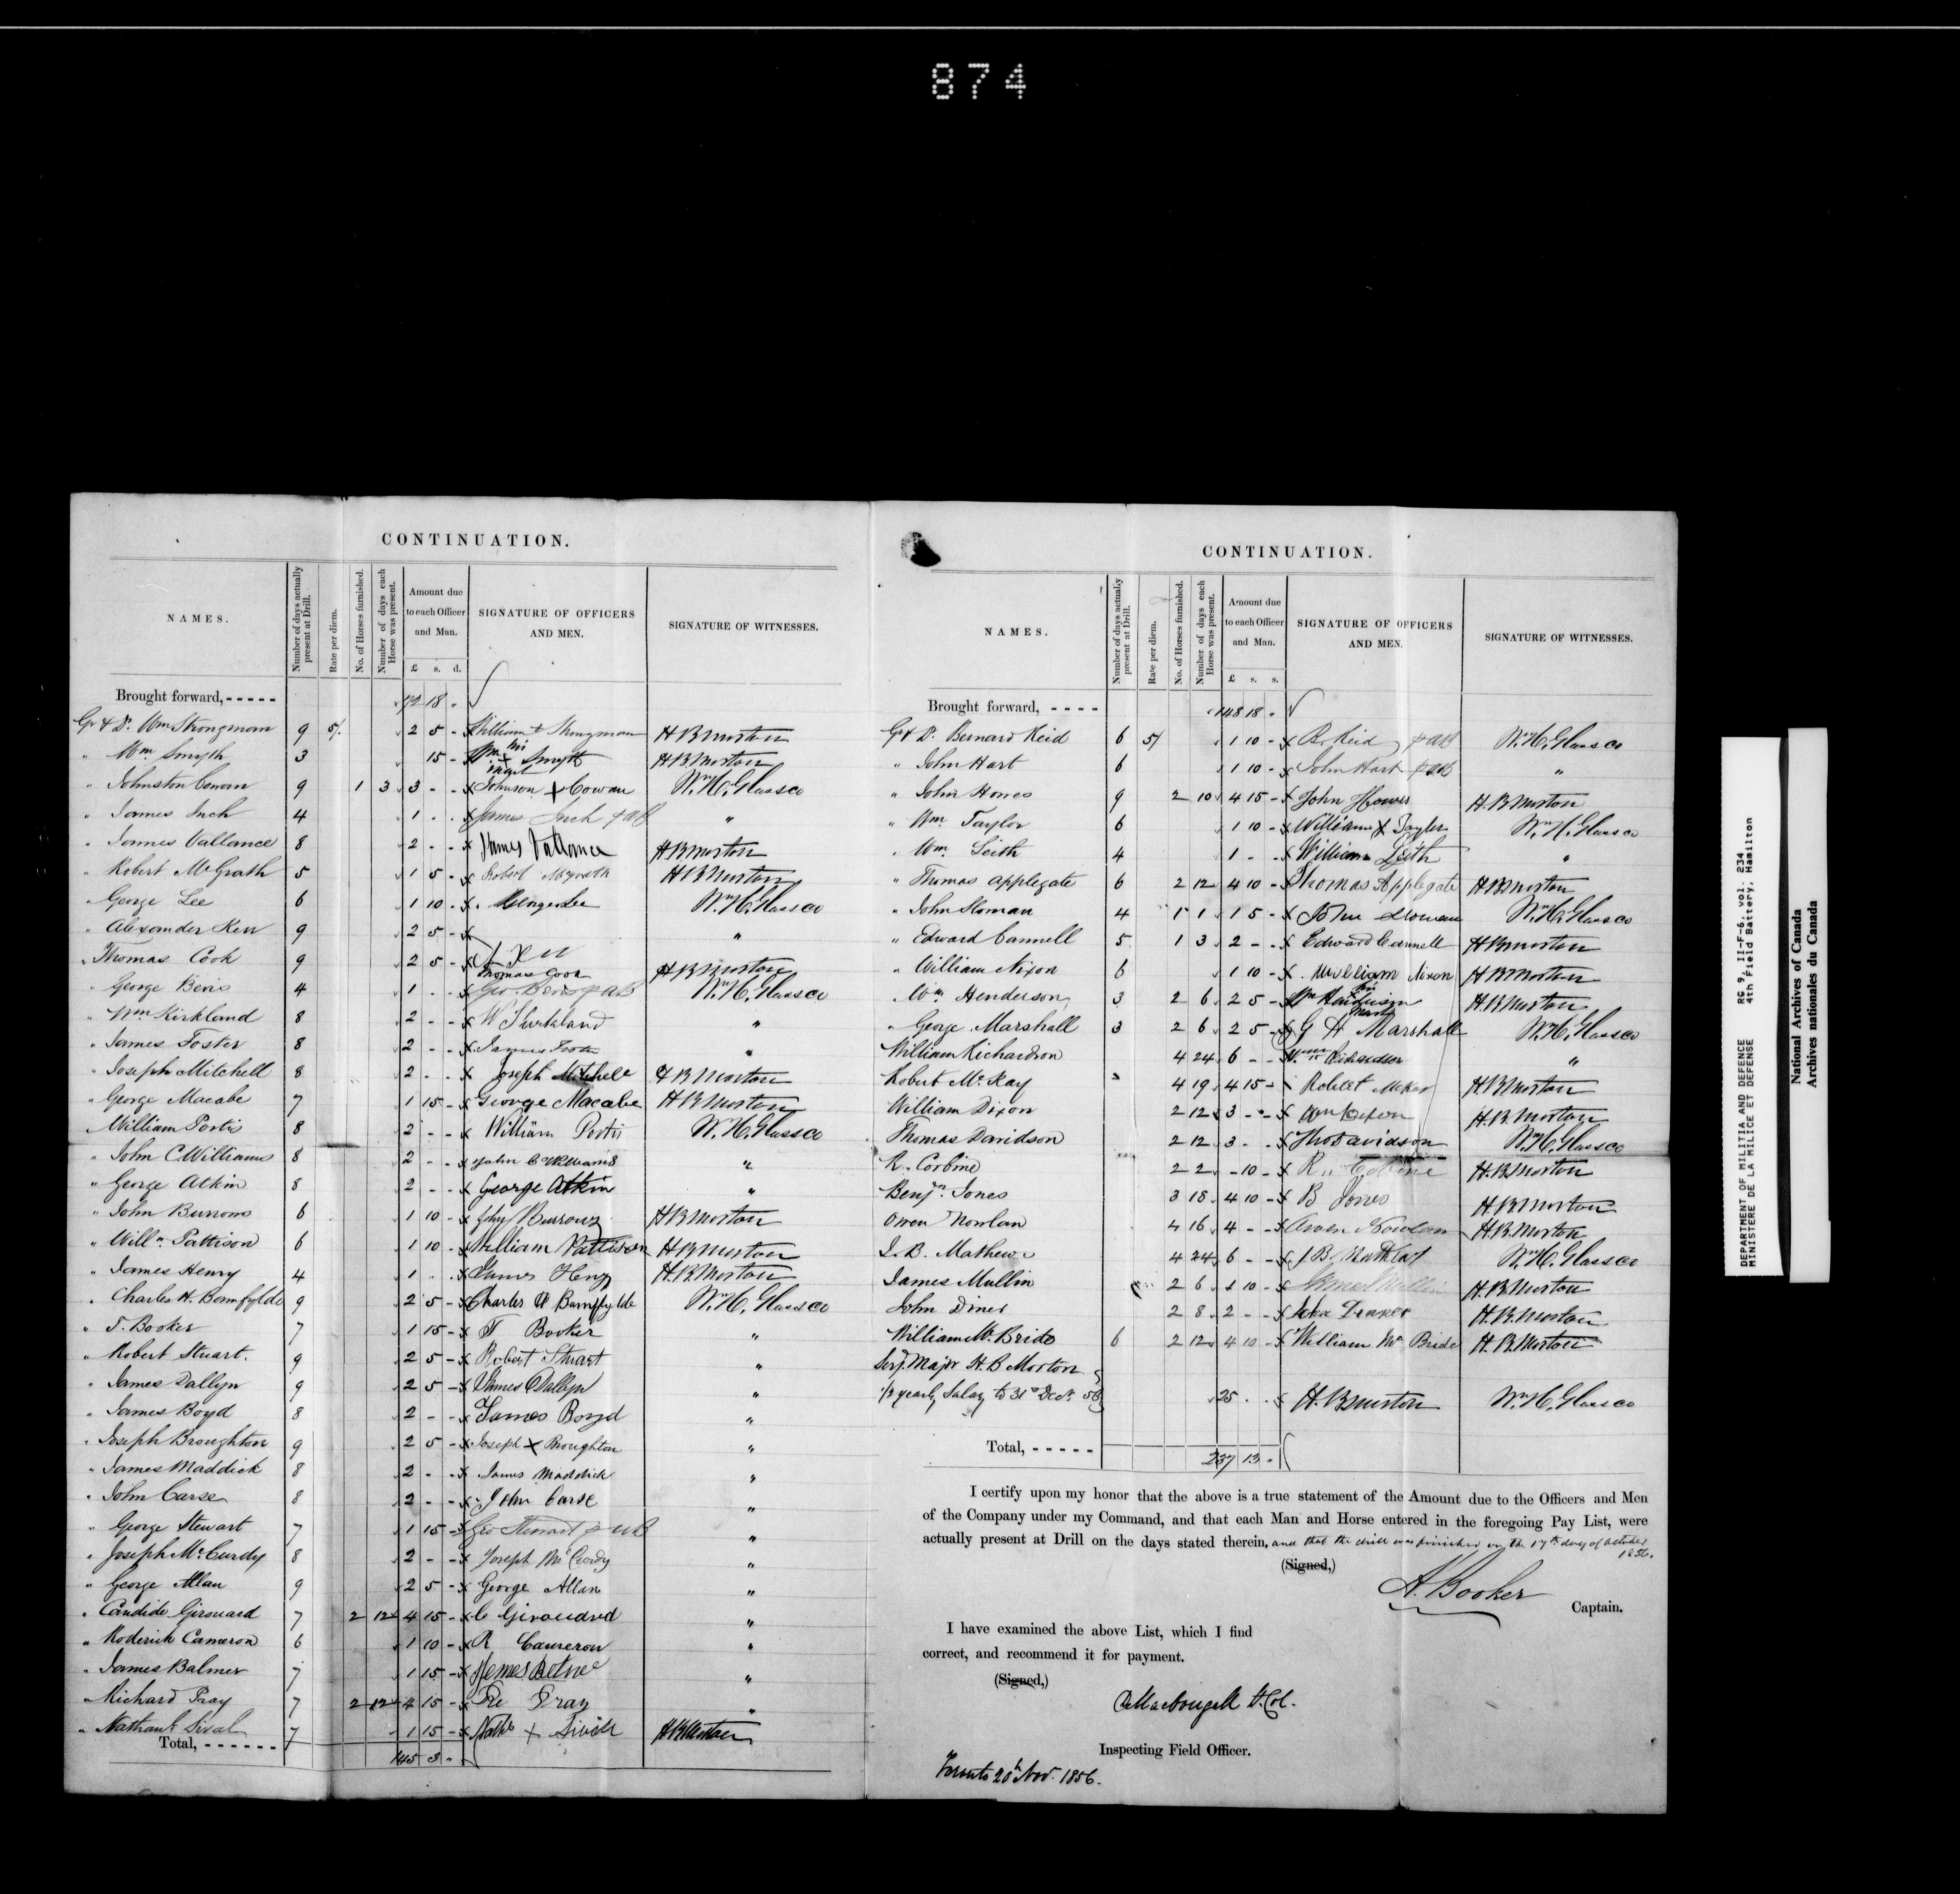 874
CONTINUATION.
NAMES. Number of days actually present at Drill. Rate per diem. No. of Horses furnished. Number of days each Horse was present. Amount due to each Officer and Man. £ s. d. SIGNATURE OF OFFICERS AND MEN. SIGNATURE OF WITNESSES.
Brought forward, - - - - - 18 "
Gr & Dr. Wm Strongman 9 5/. 2 5 - x William + Strongman H B Morton
" Wm Smyth 3 15 - x Wm his + mark Smyth H B Morton
" Johnston Cowan 9 1 3 3 - - x Johnson + Cowan Wm H. Glassco
" James Inch 4 1 - - x James Inch p AB "
" James Vallance 8 2 - - x James Vallance H B Morton
" Robert McGrath 5 1 5 - x Robert McGrath H B Morton
" George Lee 6 1 10 - x George Lee Wm H. Glassco
" Alexander Kerr 9 2 5 - x "
" Thomas Cook 9 2 5 - x Thomas Cook H B Morton
" George Bevis 4 1 - - x Geo Bevis p AB Wm H. Glassco
" Wm Kirkland 8 2 - - x W Kirkland "
" James Foster 8 2 - - x James Foster "
" Joseph Mitchell 8 2 - - x Joseph Mitchell H B Morton
" George Macabe 7 1 15 - x George Macabe H B Morton
" William Portis 8 2 - - x William Portis Wm H. Glassco
" John C. Williams 8 2 - - x John C Williams "
" George Atkin 8 2 - - x George Atkin "
" John Burrows 6 1 10 - x John Burrows H B Morton
" Willm. Pattison 6 1 10 - x William Pattison H B Morton
" James Henry 4 1 - - x James Henry H. B Morton
" Charles H. Bamfylde 9 2 5 - x Charles H Bamfylde Wm H. Glassco
" T. Booker 7 1 15 - x T Booker "
" Robert Stuart. 9 2 5 - x Robert Stuart "
" James Dallyn 9 2 5 - x James Dallyn "
" James Boyd 8 2 - - x James Boyd "
" Joseph Broughton 9 2 5 - x Joseph + Broughton "
" James Maddick 8 2 - - x James Maddick "
" John Carse 8 2 - - x John Carse "
" George Stewart 7 1 15 - x Geo Stewart p AB "
" Joseph McCurdy 8 2 - - x Joseph McCurdy "
" George Allan 9 2 5 - x George Allan "
" Candide Girouard 7 2 12 4 15 - x C Girouard "
" Roderick Cameron 6 1 10 - x R Cameron "
" James Balmer 7 1 15 - x James "
" Richard Pray 7 2 12 4 15 - x Pray "
" 7 1 15 - x + H B Morton
Total, - - - - - - 145 3 "
CONTINUATION.
NAMES. Number of days actually present at Drill. Rate per diem. No. of Horses furnished. Number of days each Horse was present. Amount due to each Officer and Man. £ s. s. SIGNATURE OF OFFICERS AND MEN. SIGNATURE OF WITNESSES.
Brought forward, - - - - 148 18 "
Gr & Dr. Bernard Reid 6 5/ 1 10 - x B. Reid p AB Wm H. Glassco
" John Hart 6 1 10 - x John Hart p AB "
" John Howes 9 2 10 4 15 - x John Howes H. B Morton
" Wm. Taylor 6 1 10 - x William x Taylor Wm H. Glassco
" Wm. Leith 4 1 - - x William Leith "
" Thomas Applegate 6 2 12 4 10 - x Thomas Applegate H B Morton
" John Sloman 4 1 1 1 5 - x John Sloman Wm H. Glassco
" Edward Cannell 5 1 3 2 - - x Edward Cannell H B Morton
" William Nixon 6 1 10 - x William Nixon H B Morton
" Wm. Henderson 3 2 6 2 5 - x Wm Henderson his mark H. B Morton
" George Marshall 3 2 6 2 5 - x G H Marshall Wm H. Glassco
William Richardson 4 24 6 - - x Wm Richardson "
Robert McKay 4 19 4 15 - x Robert McKay H B Morton
William Dixon 2 12 3 - - x Wm Dixon H. B Morton
Thomas Davidson 2 12 3 - - x Tho Davidson Wm H. Glassco
R. Corbine 2 2 - 10 - x R. H. B Morton
Benjn. Jones 3 18 4 10 - x B Jones H. B Morton
Owen Nowlan 4 16 4 - - x Owen Nowlan H. B Morton
J. B. Mathews 4 24 6 - - x J. B. Mathews Wm H. Glassco
James Mullin 2 6 1 10 - x James Mullin H. B Morton
John Diner 2 8 2 - - x John H. B Morton
William McBride 6 2 12 4 10 - x William Mc Bride H. B. Morton
Serj. Major H. B Morton
1/2 yearly Salary to 31st Decr. 56 25 - - x H. B Morton Wm H. Glassco
Total, - - - - - 237 13 "
I certify upon my honor that the above is a true statement of the Amount due to the Officers and Men
of the Company under my Command, and that each Man and Horse entered in the foregoing Pay List, were
actually present at Drill on the days stated therein, and that the drill was finished on the 17th day of October
1856.
(Signed,)
A. Booker
Captain.
I have examined the above List, which I find
correct, and recommend it for payment.
(Signed,)
MacDougall Lt. Col.
Inspecting Field Officer.
Toronto 20th Nov. 1856.
DEPARTMENT OF MILITIA AND DEFENCE RG 9, II-F-6, vol. 234
MINISTERE DE LA MILICE ET DEFENSE 4th Field Battery, Hamilton
National Archives of Canada
Archives nationales du Canada